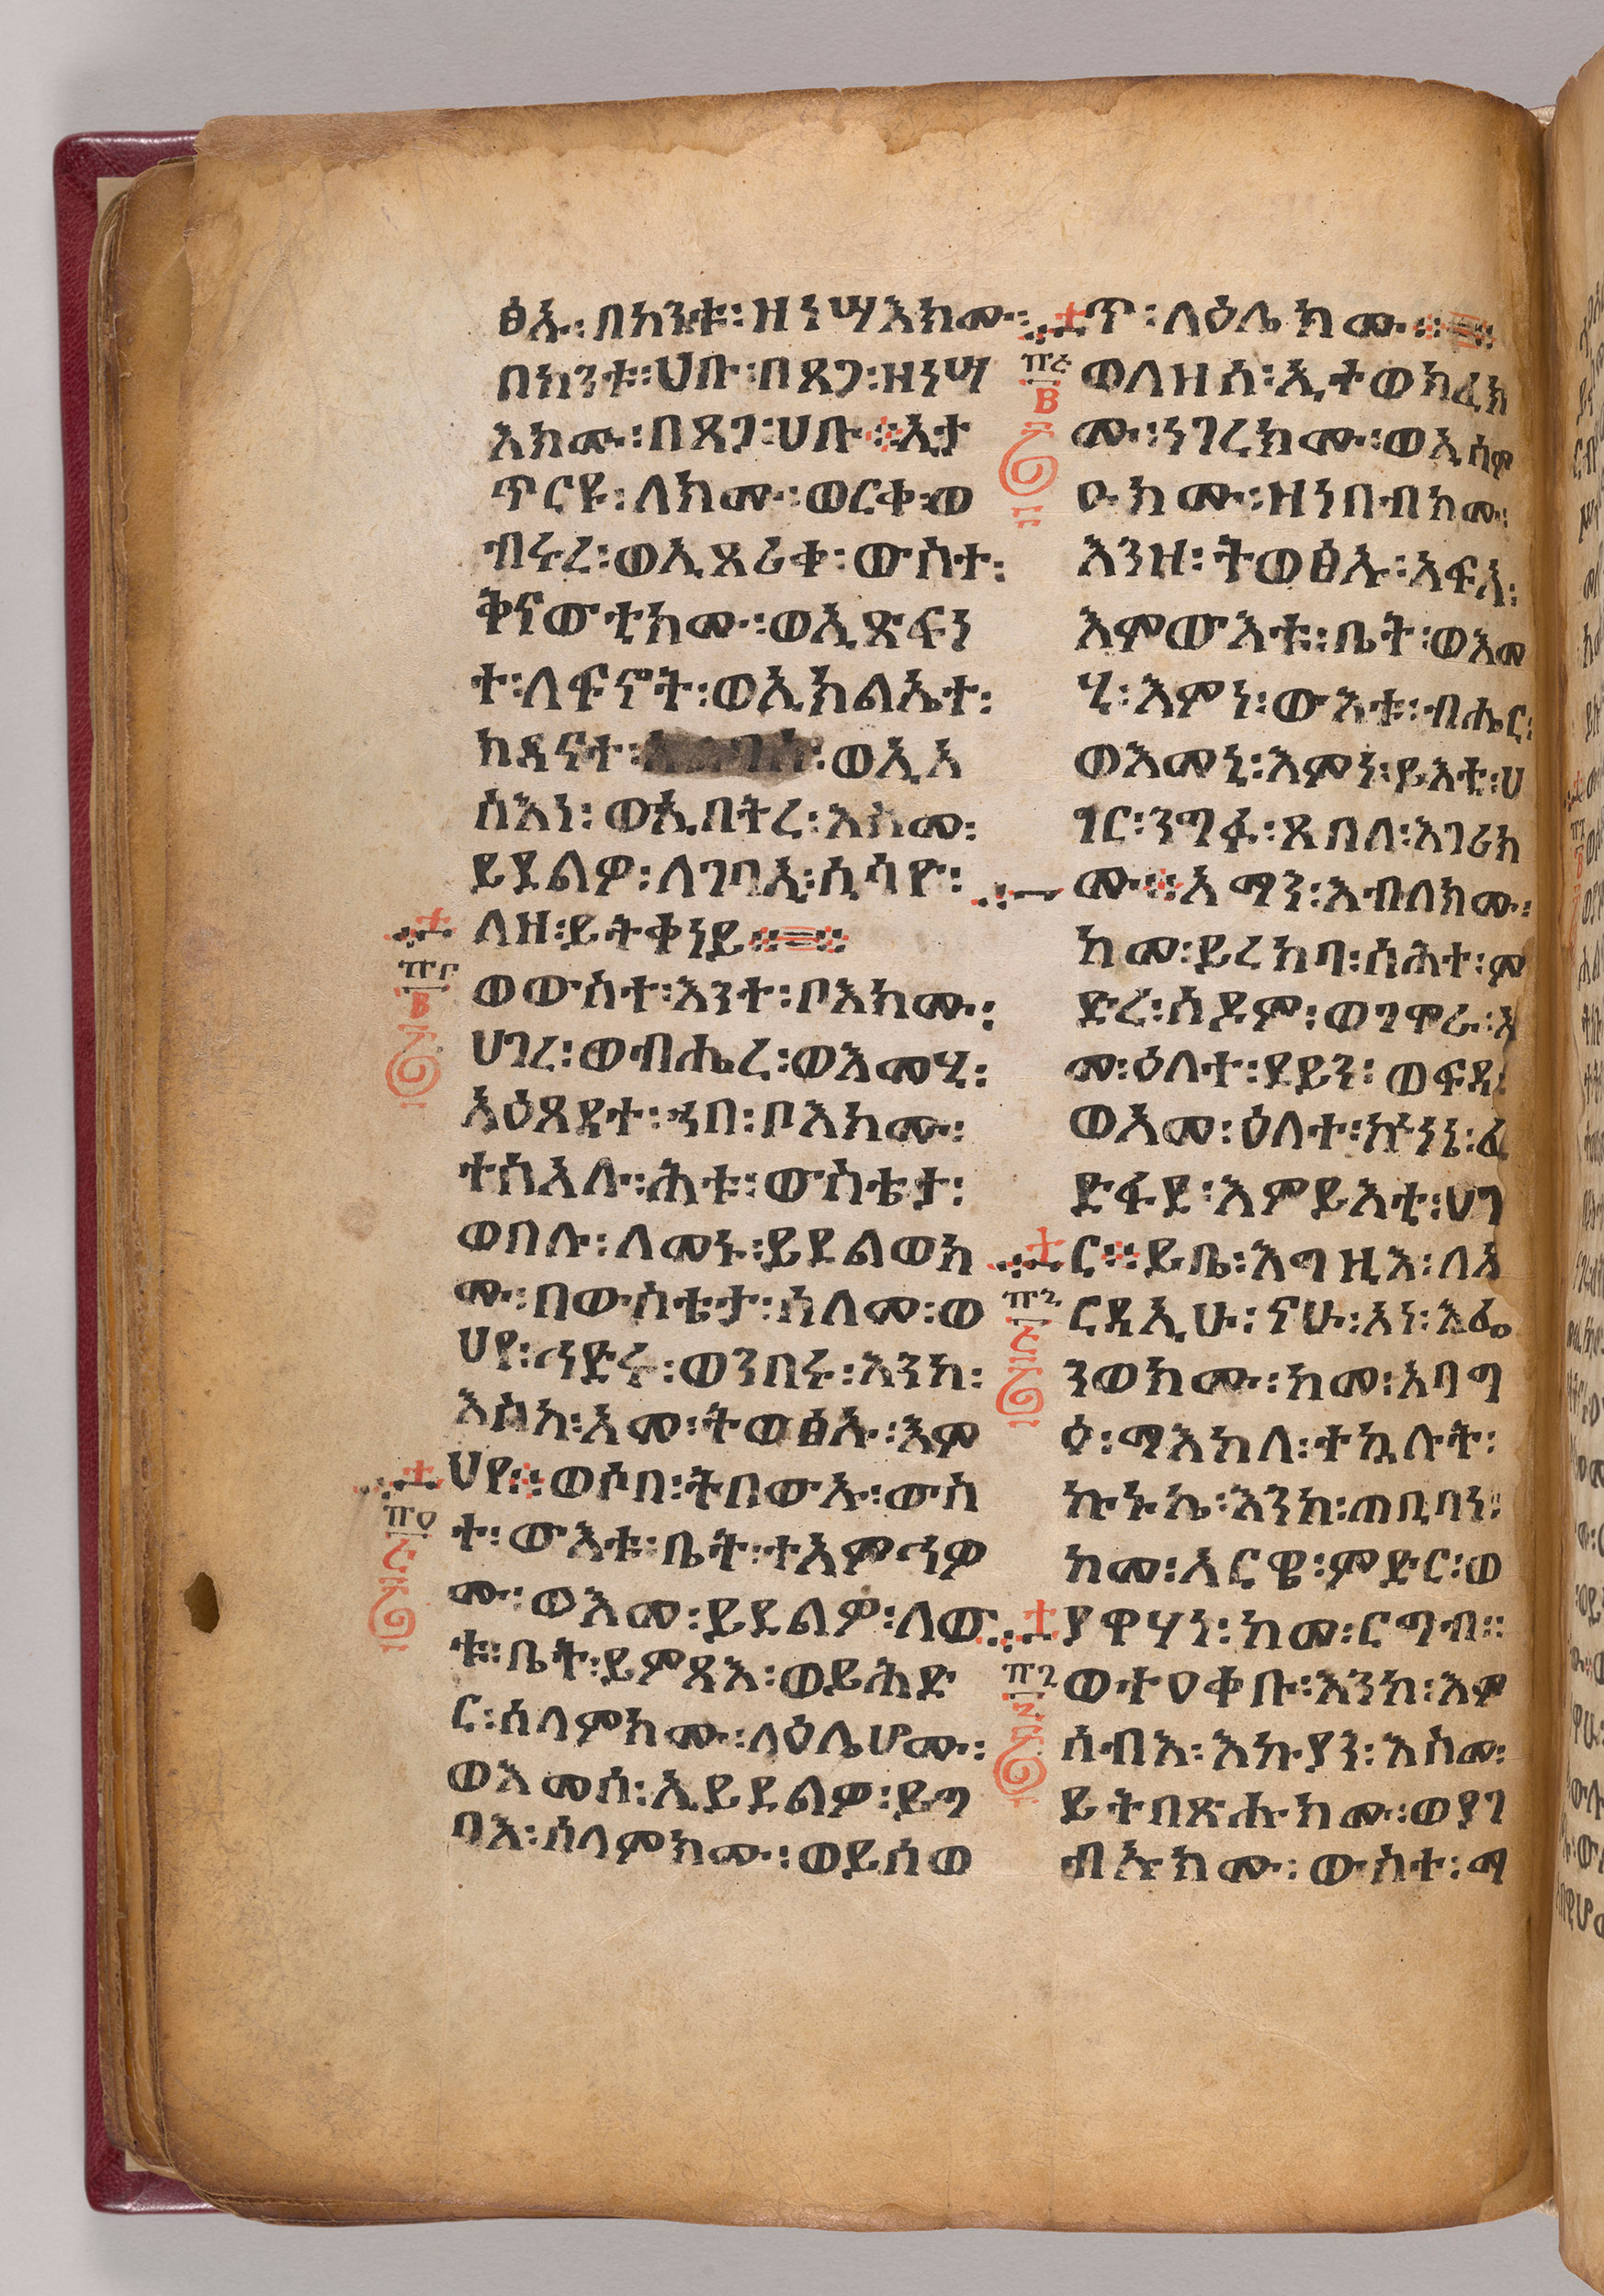 ፅኡ፡በከንቱ፡ዘነሣእክሙ፡
በከንቱ፡ሀቡ፡በጸጋ፡ዘነሣ
እክሙ፡በጸጋ፡ሀቡ፨ኢታ
ጥርዩ፡ለክሙ፡ወርቀ፡ወ
ብሩረ፡ወኢጸሪቀ፡ውስተ፡
ቅናውቲክሙ፡ወኢጽፍነ
ተ፡ለፍኖት፡ወኢክልኤተ፡
ክዳናተ፡ወኢአ
ስእነ፡ወኢበትረ፡እስመ፡
ይደልዎ፡ለገባኢ፡ሲሳዮ፡
ለዘ፡ይትቀነይ፨፨
፹፫
ወውስተ፡እንተ፡ቦእክሙ፡
ሀገረ፡ወብሔረ፡ወእመሂ፡
አዕጸዳተ፡ኀበ፡ቦእክሙ፡
ተስእሉ፡ሕቱ፡ውስቴታ፡
ወበሉ፡ለመኑ፡ይደልወክ
ሙ፡በውስቴታ፡ሰላመ፡ወ
ህየ፡ኅድሩ፡ወንበሩ፡እንከ፡
እስከ፡አመ፡ትወፅኡ፡እም
ህየ፨ወሶበ፡ትበውኡ፡ውስ
፹፬
ተ፡ውእቱ፡ቤት፡ተአምኅዎ
ሙ፡ወእመ፡ይደልዎ፡ለው
ቱ፡ቤት፡ይምጻእ፡ወይሕድ
ር፡ሰላምክሙ፡ላዕሌሆሙ፡
ወእመሰ፡ኢይደልዎ፡ይግ
ባእ፡ሰላምክሙ፡ወይሰወ
ጥ፡ላዕሌክሙ፨፨
፹፭
ወለዘሰ፡ኢተወክፈክ
ሙ፡ነገረክሙ፡ወኢሰም
ዑክሙ፡ዘነበብክሙ፡
እንዘ፡ትወፅኡ፡አፍአ፡
እምውእቱ፡ቤት፡ወእመ
ሂ፡እምነ፡ውእቱ፡ብሔር፡
ወእመኒ፡እምነ፡ይእቲ፡ሀ
ገር፡ንግፉ፡ጸበለ፡እገሪክ
ሙ፨አማን፡እብለክሙ፡
ከመ፡ይረክባ፡ስሕተ፡ም
ድረ፡ሰዶም፡ወገሞራ፡አ
መ፡ዕለተ፡ደይን፡ወፍዳ፡
ወአመ፡ዕለተ፡ኵነኔ፡ፈ
ድፋደ፡እምይእቲ፡ሀገ
ር፨ይቤ፡እግዚእ፡ለአ
፹፮
ርዳኢሁ፡ናሁ፡አነ፡እፌ
ንወክሙ፡ከመ፡አባግ
ዕ፡ማእከለ፡ተኲላት፡
ኩኑኬ፡እንከ፡ጠቢባነ፡
ከመ፡አርዌ፡ምድር፡ወ
ያዋሃነ፡ከመ፡ርግብ፡፡
፹፯
ወተዐቀቡ፡እንከ፡እም
ሰብእ፡እኩያን፡እስመ፡
ይትበጽሑክሙ፡ወያገ
ብኡክሙ፡ውስተ፡ማ